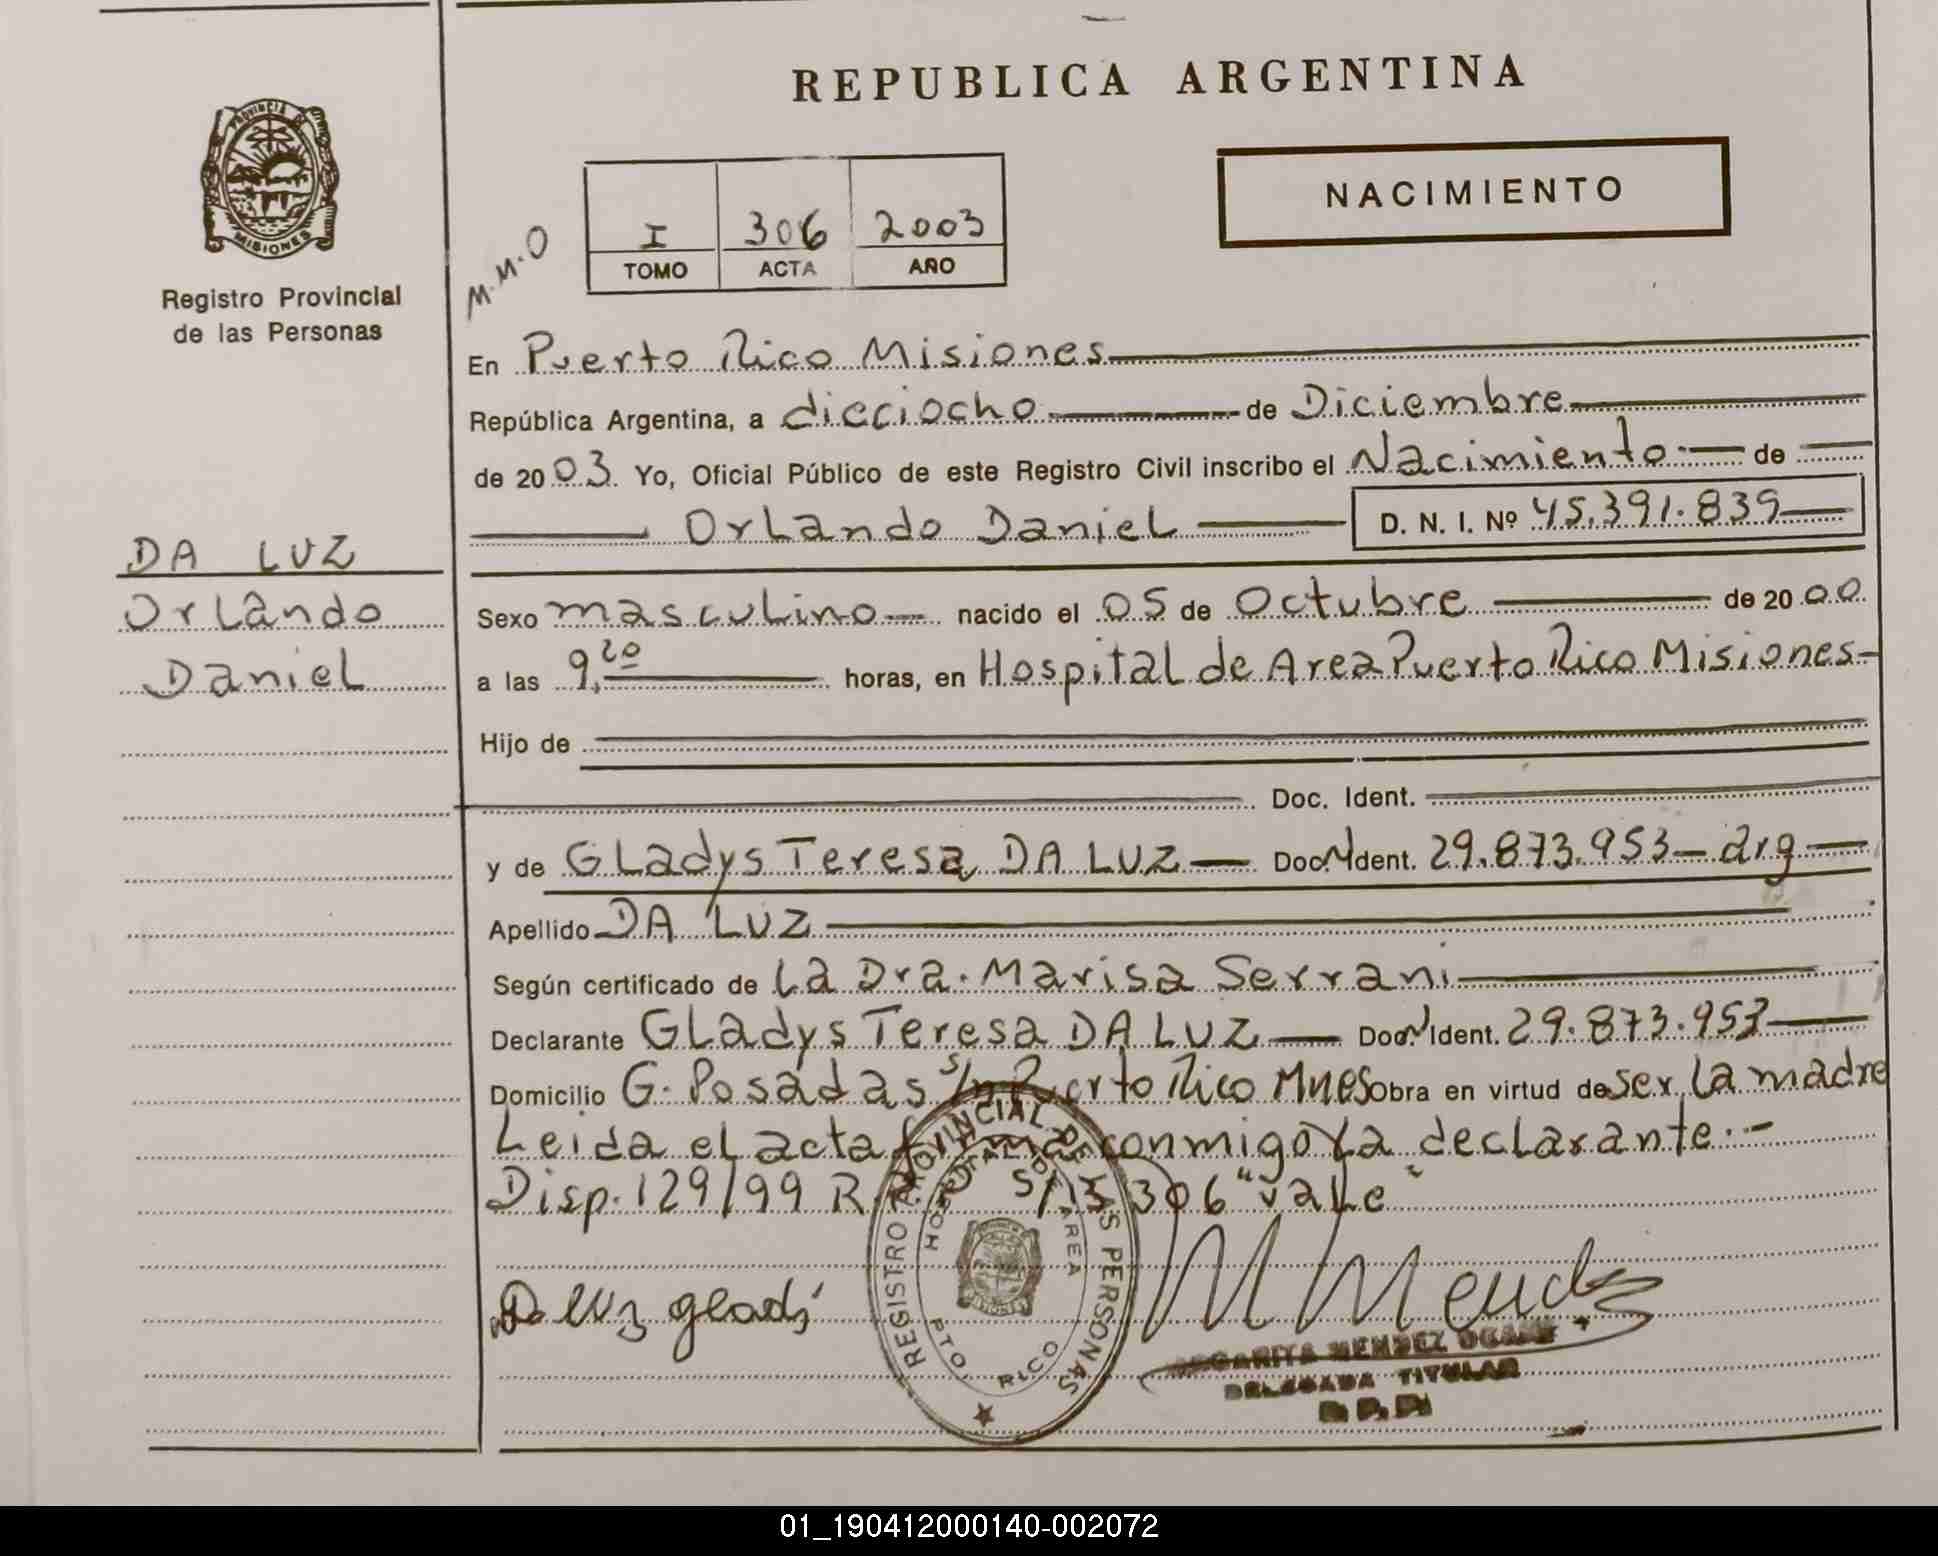 REPUBLICA ARGENTINA
PROVINCIA DE
MISIONES
Registro Provincial
de las Personas
NACIMIENTO
M.M.O
I 306 2003
TOMO ACTA AÑO
En Puerto Rico Misiones
República Argentina, a dieciocho de Diciembre
de 2003 Yo, Oficial Público de este Registro Civil inscribo el Nacimiento de
Orlando Daniel D. N. I. Nº 45.391.839
DA LUZ
Orlando
Daniel
Sexo masculino nacido el 05 de Octubre de 2000
a las 9,20 horas, en Hospital de Area Puerto Rico Misiones
Hijo de
Doc. Ident.
y de Gladys Teresa DA LUZ Doc. N Ident. 29.873.953 - arg
Apellido DA LUZ
Según certificado de la Dra. Marisa Serrani
Declarante Gladys Teresa DA LUZ Doc. N Ident. 29.873.953
Domicilio G. Posadas s/n Puerto Rico Mnes Obra en virtud de ser la madre
Leida el acta firma conmigo la declarante.-
Disp. 129/99 R. S/B 306 "vale"
Da luz glads M Mendez
REGISTRO PROVINCIAL DE LAS PERSONAS
HOSPITAL DE AREA
PTO. RICO
MENDEZ
DELEGADA TITULAR
01_190412000140-002072